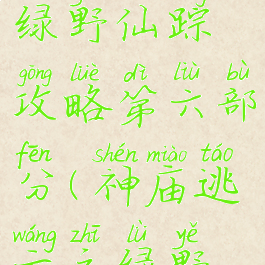 绿野仙踪
gōng lüè dì liù bù
攻略第六部
fēn shén miào táo
分(神庙逃
wáng zhī lǜ yě
亡之绿野